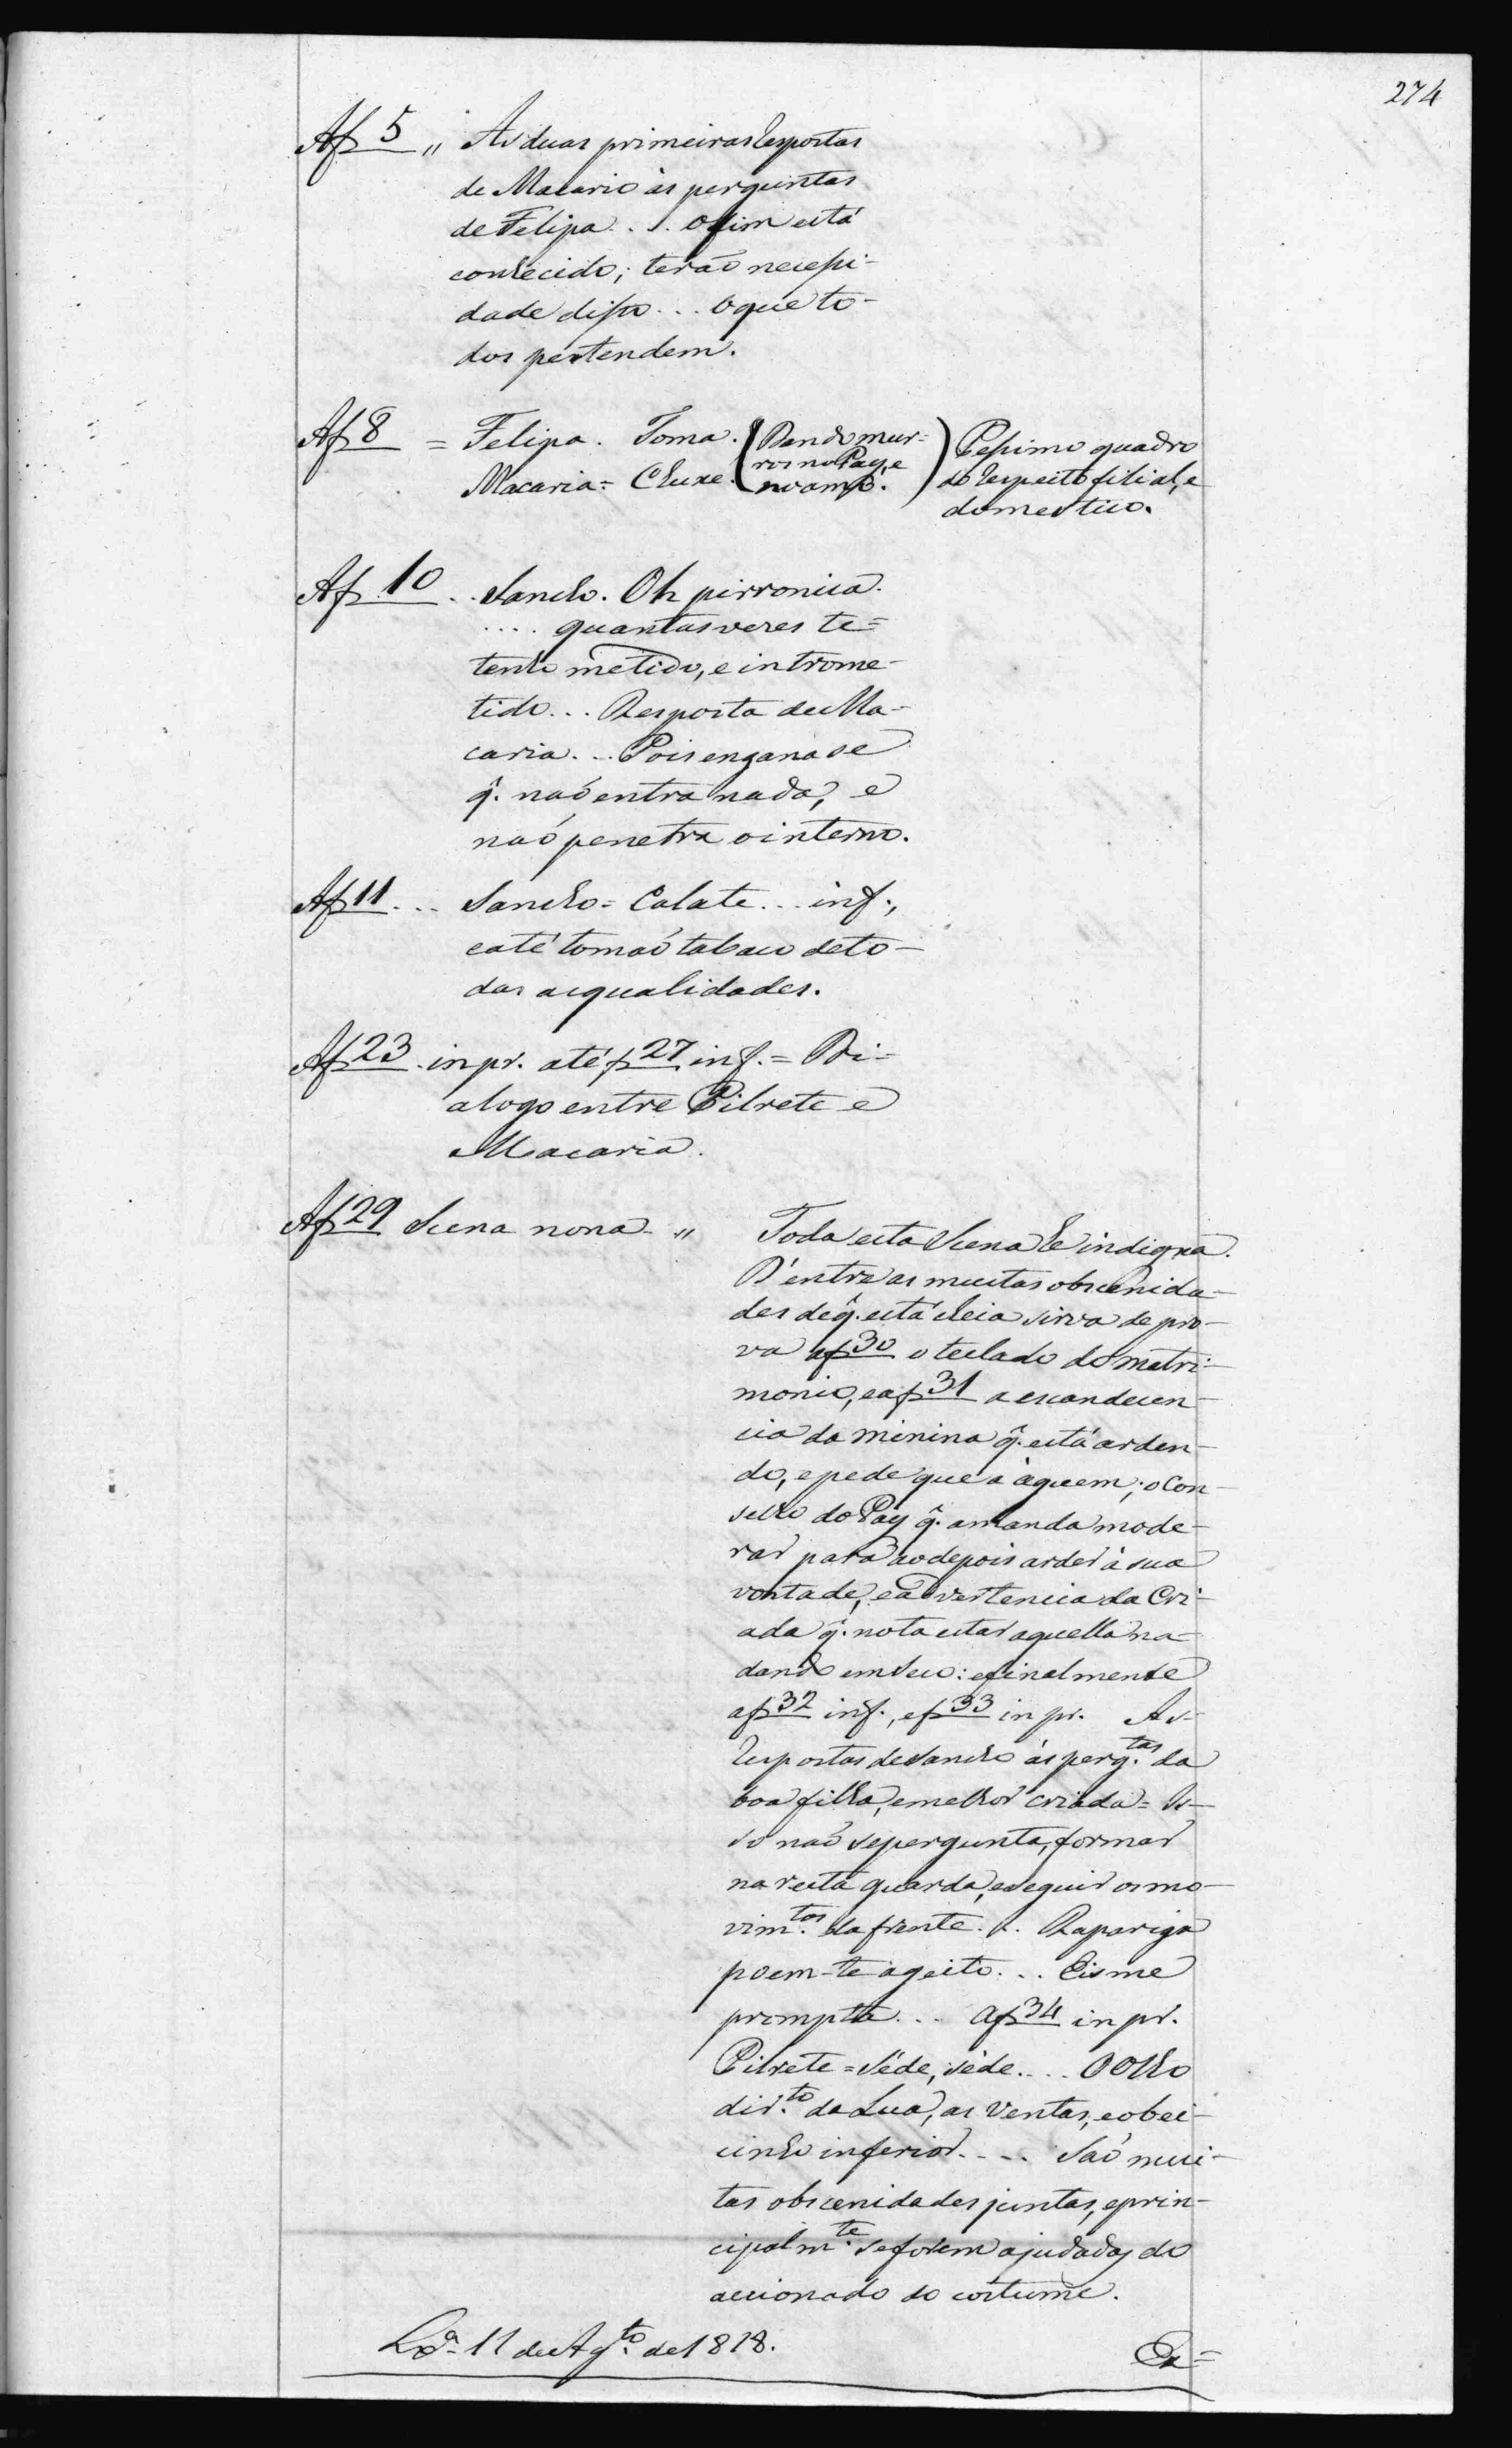 274
Af 5 " As duas primeiras respostas
de Macario às perguntas
de Felipa. . . o fim está
conhecido; terão necessi-
dade disso... o que to-
dos pertendem.
Af 8 = Felipa. Toma. (Dando mur-
ros no Pay, e
no amo.) Pessimo quadro
do respeito filial, e
domestico.
Macaria = Chuxe.
Af 10 .. Sancho. Oh pirronica.
.... quantas vezes te=
tenho metido, e introme-
tido... Resposta de Ma-
caria... Pois engana se
q̃. naõ entra nada, e
naõ penetra o interno.
Af 11... Sancho = Calate... inf.,
e até tomaõ tabaco de to-
das as qualidades.
Af 23. in pr. até f 27 inf. = Di-
alogo entre Pilrete e
Macaria.
Af 29 Scena nona - " Toda esta Scena he indigna.
D'entre as muitas obscenida-
des de q̃. está cheia sirva de pro-
va af 30 o teclado do matri-
monio, e af 31 a escandecen-
cia da minina q̃. está arden-
do, e pede que a àguem; o Con-
selho do Pay q̃. a manda mode-
rar para ao depois arder à sua
vontade, e a advertencia da Cri-
ada q̃. nota estar aquella na-
dando em seco: e finalmente
af 32 inf., e f 33 in pr. As-
respostas de Sancho ás perg.tas da
boa filha, e melhor criada = Is-
so naõ se pergunta, formar
na recta guarda, e seguir os mo-
vim.tos da frente. .. Rapariga
poem-te a geito... Eis me
prompta... Af 34 in pr.
Pilrete = Séde, séde.... O Olho
dir.to da Lua, as Ventas, e o bei-
cinho inferior.... Saõ mui-
tas obscenidades juntas, e prin-
cipalm.te se forem ajudadas do
accionado do costume.
Lx.ª 11 de Ag.to de 1818.
Ex=